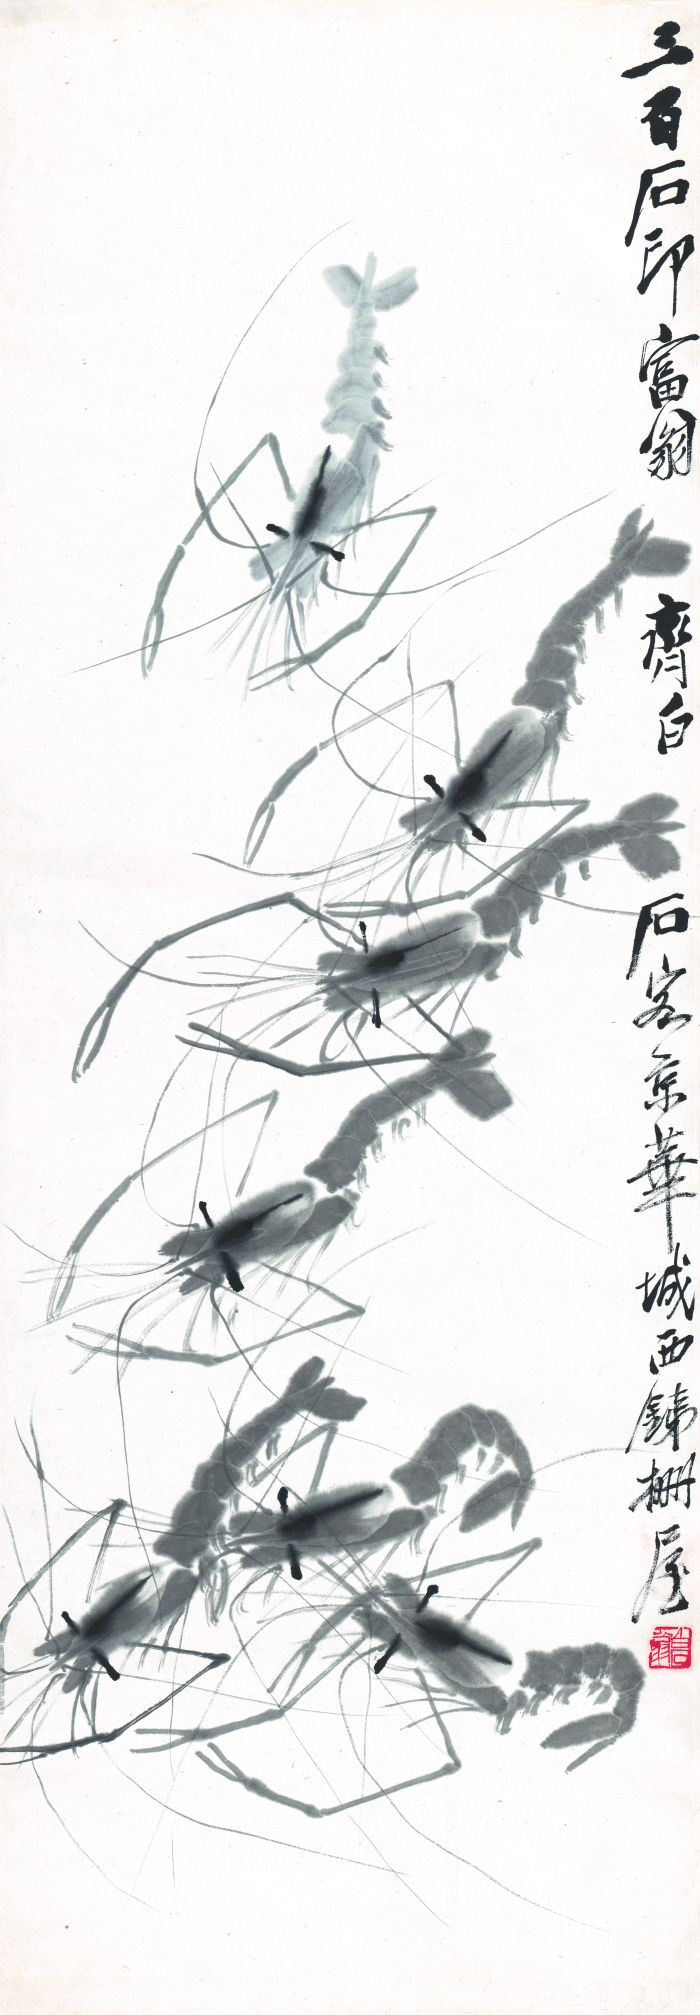 三百石印富翁齊白石客京華城西鐵柵屋
白石翁